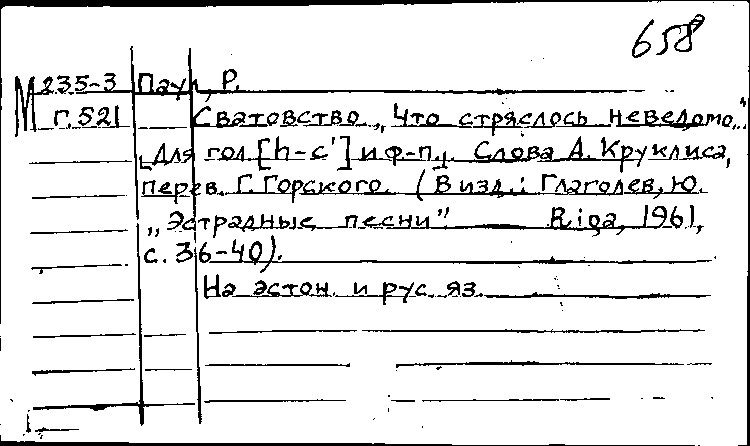 658
М 235-3 Паул, Р.
г. 521 Сватовство „Что стряслось неведомо..."
[Для гол. [h-c'] и ф-п.]. Слова А. Круклиса,
перев. Г. Горского. (В изд.: Глаголев, Ю.
„Эстрадные песни" Riga, 1961,
с. 36-40).
На эстон. и рус. яз.